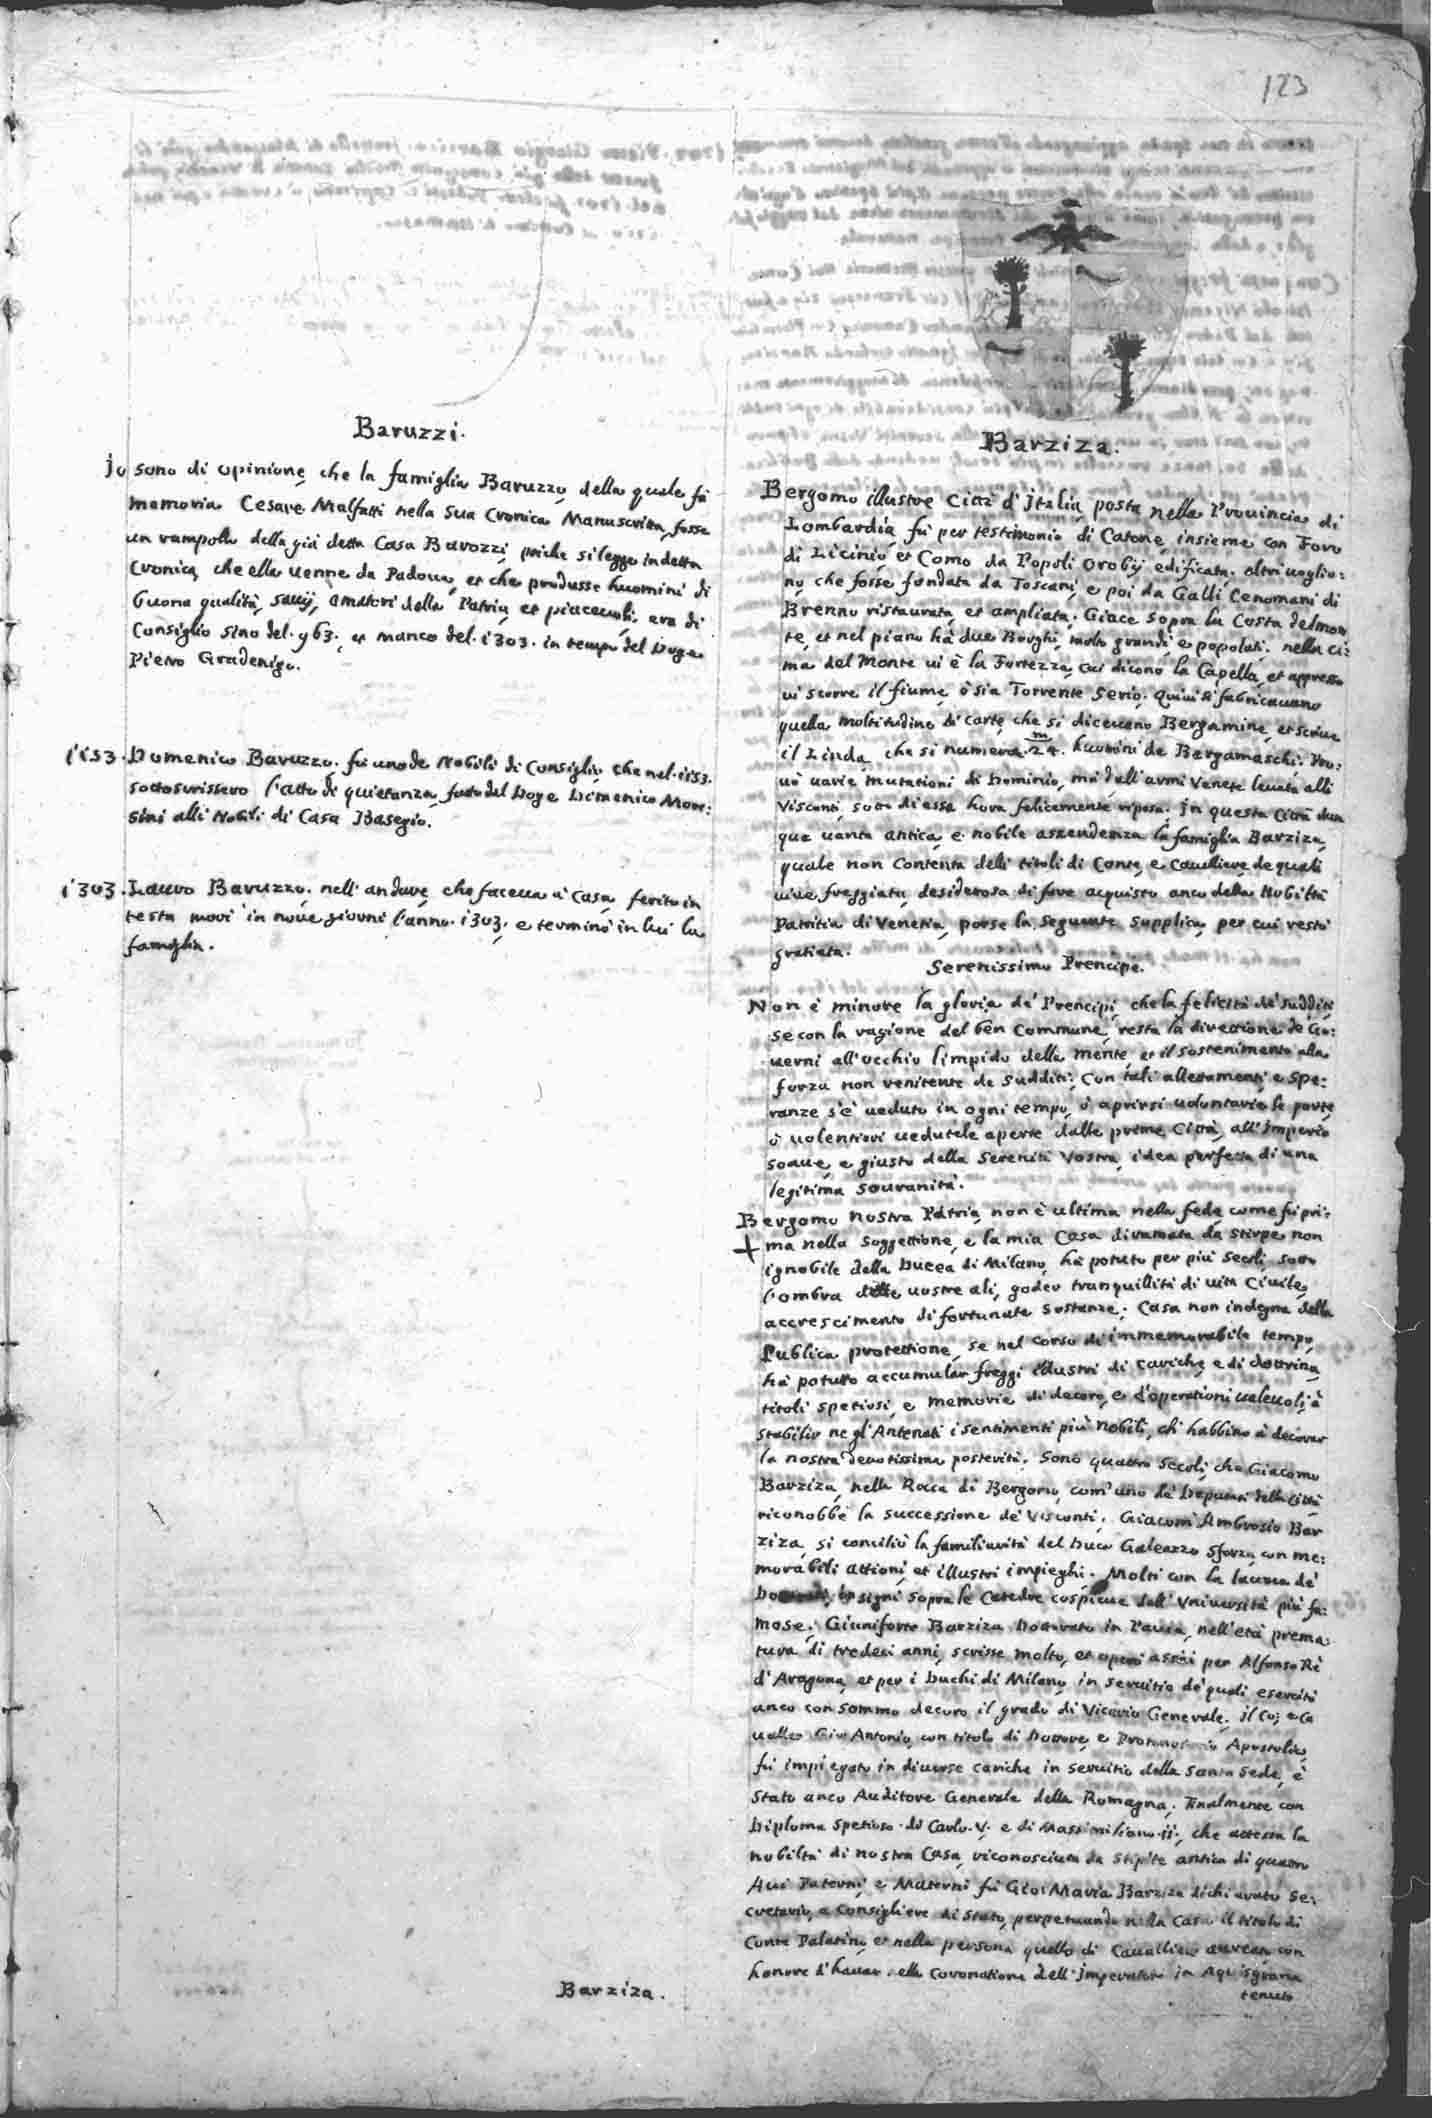 123
Baruzzi.
Jo sono di opinione, che la famiglia Baruzzo, della quale fà
memoria Cesare Malfatti nella sua Cronica Manuscritta, fosse
un rampollo della già detta Casa Barozzi, poiche si legge in detta
Cronica, che ella uenne da Padoua, et che produsse huomini di
buona qualità, sauij, amatori della Patria, et piaceuoli. era di
Consiglio sino del. 963. et manco del. 1303. in tempo del Doge
Pietro Gradenigo.
1153. Domenico Baruzzo. fù uno de Nobili di Consiglio che nel. 1153.
sottoscrissero l'atto di quietanza, fatto dal Doge Domenico Moro:
sini alli Nobili di Casa Basegio.
1303. Lauro Baruzzo. nell'andare, che faceua à Casa, ferito in
testa morì in noue giorni l'anno. 1303. e terminò in lui la
famiglia.
Barziza.
Barziza.
Bergomo illustre Città d'Italia, posta nella Prouincia di
Lombardia fù per testimonio di Catone, insieme con Foro
di Licinio, et Como da Popoli Orobij edificata. altri uoglio:
no, che fosse fondata da Toscani, e poi da Galli Cenomani di
Brenno ristaurata, et ampliata. Giace sopra la Costa del mon
te, et nel piano hà due Borghi, molto grandi, e popolati. nella ci:
ma del Monte ui è la Fortezza, cui dicono la Capella, et appresso
ui scorre il fiume, ò sia Torrente Serio. Quiui si fabricauano
quella moltitudine di carte, che si diceuano Bergamine, et scriue
il Linda, che si numera m 24. huomini de Bergamaschi. Pro:
uò uarie mutationi di Dominio, mà dall'armi Venete leuata alli
Visconti, sotto di esse hora felicemente riposa. In questa Città dun
que uanta antica, e nobile ascendenza la famiglia Barziza,
quale non contenta delli titoli di Conte, e Caualliere, de quali
uiue freggiata, desiderosa di fare acquisto anco della Nobiltà
Patritia di Venetia, porse la seguente supplica, per cui restò
gratiata.
Serenissimo Prencipe.
Non è minore la gloria de' Prencipi, che la felicità de' sudditi,
se con la ragione del ben commune, resta la direttione de Go:
uerni all'occhio limpido della mente, et il sostenimento alla
forza non renitente de sudditi. Con tali allettamenti, e spe:
ranze s'è ueduto in ogni tempo, ò aprirsi uolontarie le porte,
ò uolentieri uedutele aperte dalle prime Città, all'Imperio
soaue, e giusto della Serenità Vostra, idea perfetta di una
legitima souranità.
Bergomo nostra Patria, non è ultima nella fede, come fù pri:
+ ma nella soggettione, e la mia Casa diramata da stirpe non
ignobile della Ducea di Milano, hà potuto per più secoli, sotto
l'ombra delle uostre ali, goder tranquillità di uita Ciuile,
accrescimento di fortunate sostanze. Casa non indegna della
Publica protettione, se nel corso di immemorabile tempo,
hà potuto accumular freggi illustri di cariche, e di dottrina,
titoli spetiosi, e memorie di decoro, e d'operationi ualeuoli, à
stabilir ne gl'Antenati i sentimenti più nobili, ch'habbino à decorar
la nostra deuotissima posterità. Sono quattro secoli, che Giacomo
Barziza, nella Rocca di Bergomo, com'uno de' Deputati della Città
riconobbe la successione de' Visconti. Giacom'Ambrosio Bar
ziza, si conciliò la familiarità del Duca Galeazzo Sforza, con me:
morabili attioni, et illustri impieghi. Molti con la laurea de'
insigni sopra le Catedre cospicue dell'Vniuersità più fa:
mose. Giuniforte Barziza Dottorato in Pauia, nell'età prema:
tura di tredeci anni, scrisse molto, et operò assai per Alfonso Rè
d'Aragona, et per i Duchi di Milano, in seruitio de' quali esercitò
anco con sommo decoro il grado di Vicario Generale. Il Co; e Ca
uallier Gio: Antonio, con titolo di Dottore, e Protonotario Apostolico,
fù impiegato in diuerse cariche in seruitio della Santa Sede, è
stato anco Auditore Generale della Romagna. Finalmente con
Diploma spetioso. di Carlo. V. e di Massimiliano. II., che attesta la
nobiltà di nostra Casa, riconosciuta da stipite antica di quattro
Aui Paterni, e Materni fù Gio: Maria Barziza dichiarato Se:
cretario, e Consigliere di Stato, perpetuando nella Casa il titolo di
Conte Palatino, et nella persona quello di Caualliere aureato, con
honore d'hauer nella Coronatione dell'Imperatore in Aquisgrana
tenuto